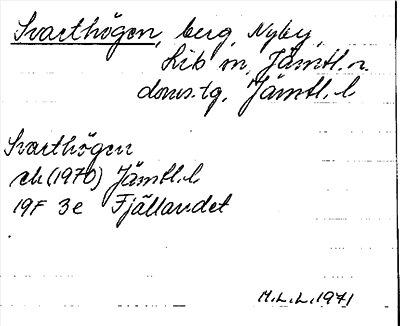 Svarthögen, berg, Nyby,
Lib m, Jämtl. n.
doms.tg, Jämtl. l
Svarthögen
ek (1970) Jämtl. l.
19F 3e Fjällandet
M.L.L. 1971